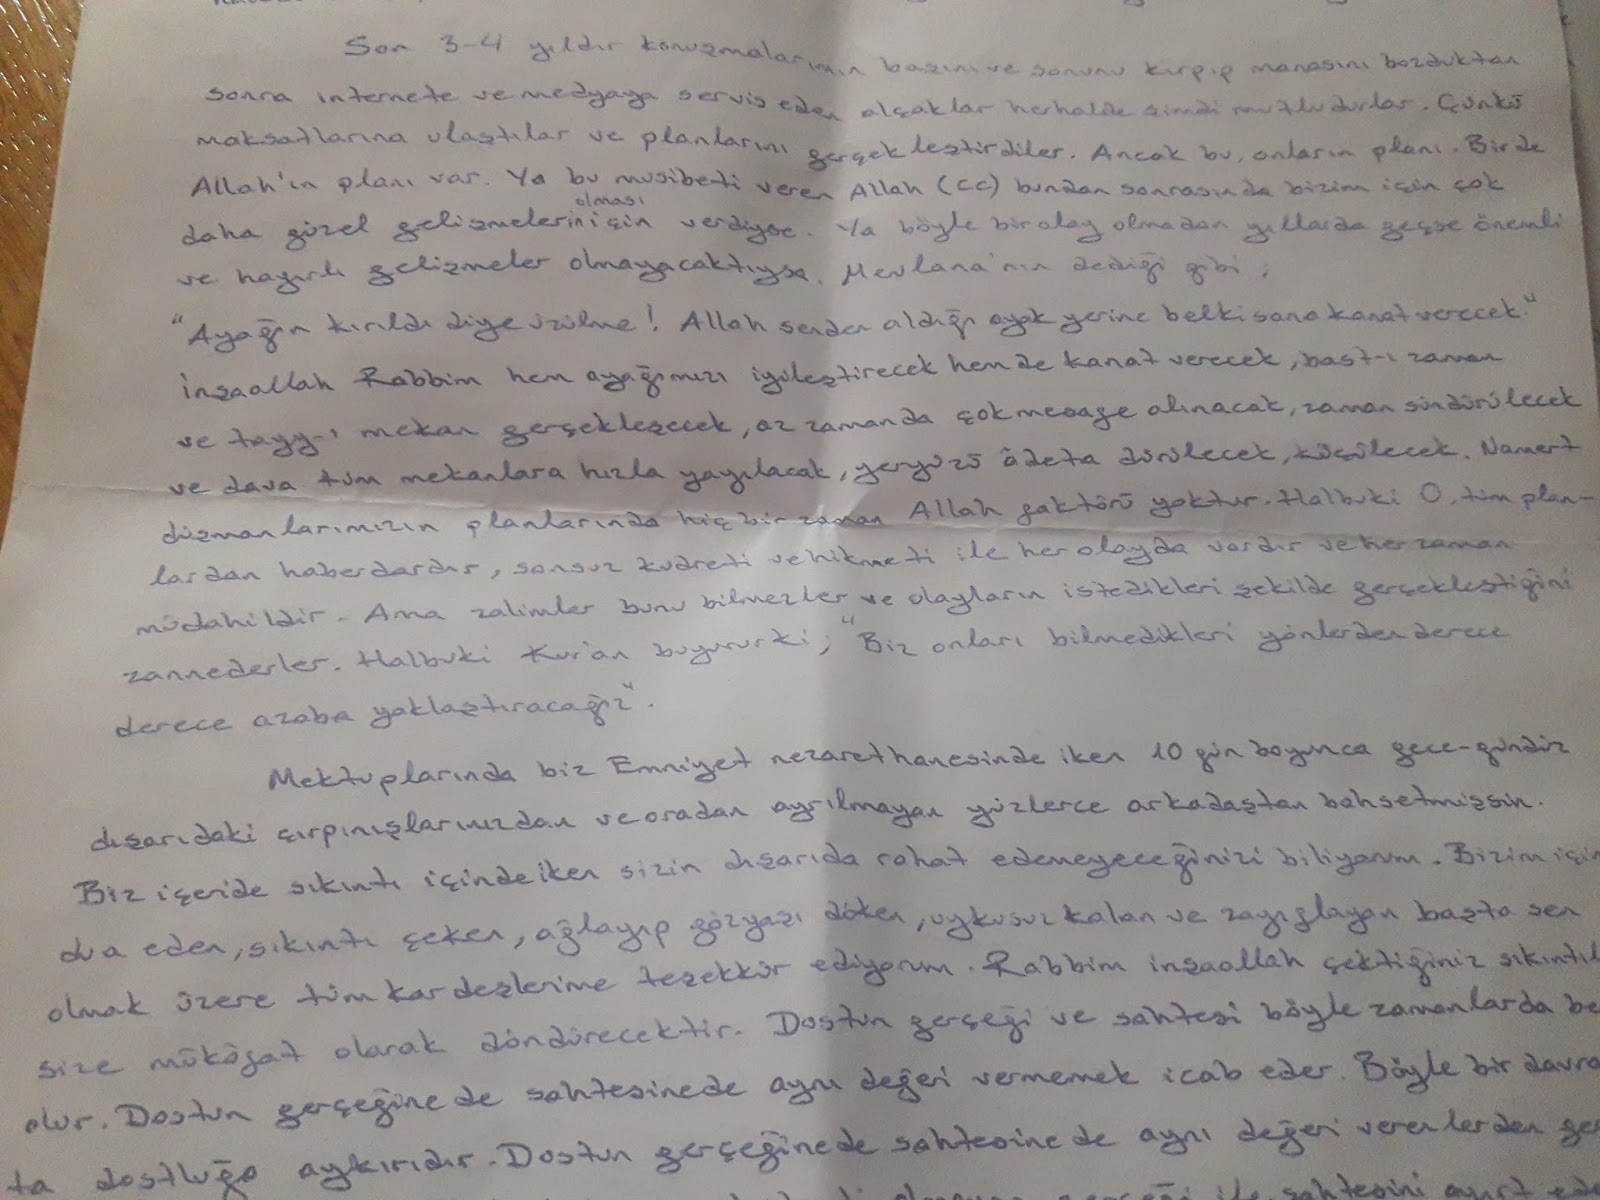 Son 3-4 yıldır konuşmalarımın başını ve sonunu kırpıp manasını bozduktan
sonra internete ve medyaya servis eden alçaklar herhalde şimdi mutludurlar. Çünkü
maksatlarına ulaştılar ve planlarını gerçekleştirdiler. Ancak bu, onların planı. Birde
Allah'ın planı var. Ya bu musibeti veren Allah (CC) bundan sonrasında bizim için çok
olması
daha güzel gelişmelerin için verdiyse. Ya böyle bir olay olmadan yıllarda geçse önemli
ve hayırlı gelişmeler olmayacaktıysa. Mevlana'nın dediği gibi;
"Ayağın kırıldı diye üzülme! Allah senden aldığı ayak yerine belki sana kanat verecek."
İnşaallah Rabbim hem ayağımızı iyileştirecek hem de kanat verecek, bast-ı zaman
ve tayy-ı mekan gerçekleşecek, az zamanda çok mesafe alınacak, zaman sündürülecek
ve dava tüm mekanlara hızla yayılacak, yeryüzü âdeta dürülecek, küçülecek. Namert
düşmanlarımızın planlarında hiç bir zaman Allah faktörü yoktur. Halbuki O, tüm plan-
lardan haberdardır, sonsuz kudreti ve hikmeti ile her olayda vardır ve her zaman
müdahildir. Ama zalimler bunu bilmezler ve olayların istedikleri şekilde gerçekleştiğini
zannederler. Halbuki Kur'an buyurur ki; "Biz onları bilmedikleri yönlerden derece
derece azaba yaklaştıracağız".
Mektuplarında biz Emniyet nezarethanesinde iken 10 gün boyunca gece-gündüz
dışarıdaki çırpınışlarınızdan ve oradan ayrılmayan yüzlerce arkadaştan bahsetmişsin.
Biz içeride sıkıntı içinde iken sizin dışarıda rahat edemeyeceğinizi biliyorum. Bizim için
dua eden, sıkıntı çeken, ağlayıp gözyaşı döken, uykusuz kalan ve zayıflayan başta sen
olmak üzere tüm kardeşlerime teşekkür ediyorum. Rabbim inşaallah çektiğiniz sıkıntıl
size mükâfat olarak döndürecektir. Dostun gerçeği ve sahtesi böyle zamanlarda be
olur. Dostun gerçeğine de sahtesine de aynı değeri vermemek icab eder. Böyle bir davra
ta dostluğa aykırıdır. Dostun gerçeğine de sahtesine de aynı değeri verenlerden ger
gerçeği ile sahtesini ayırt ede